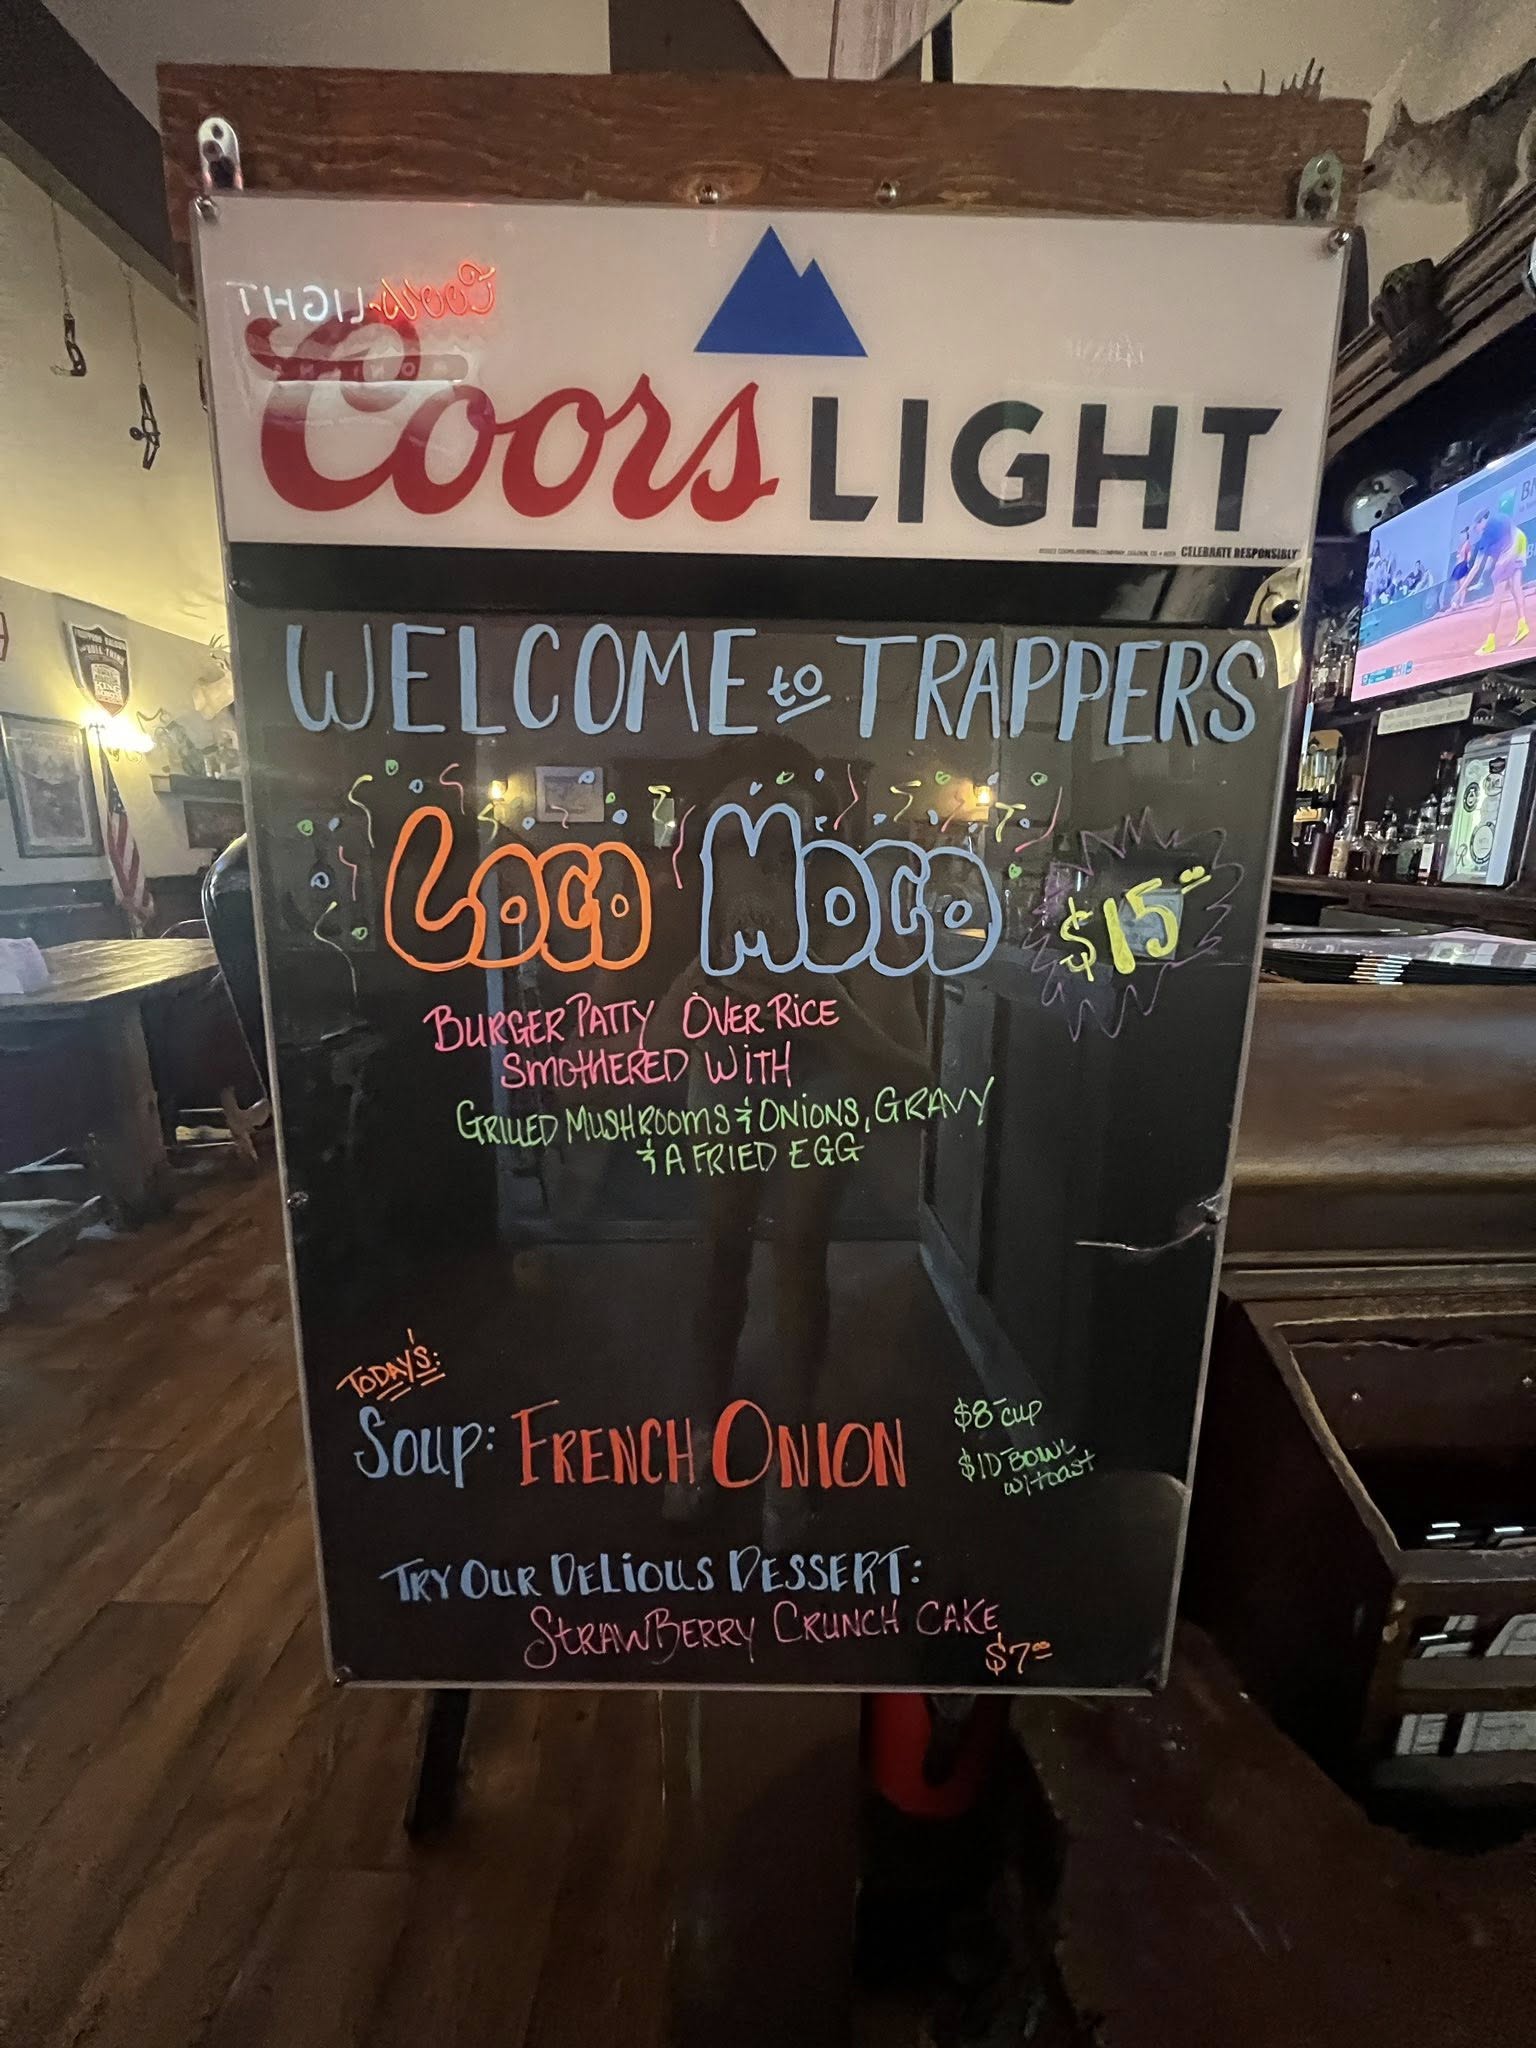 Coors LIGHT
Coors LIGHT
CELEBRATE RESPONSIBLY
WELCOME to TRAPPERS
LOCO MOCO
$15.00
BURGER PATTY OVER RICE
SMOTHERED WITH
GRILLED MUSHROOMS & ONIONS, GRAVY
& A FRIED EGG
TODAY'S:
SOUP: FRENCH ONION
$8-CUP
$10-BOWL
w/toast
TRY OUR DELIOUS DESSERT:
STRAWBERRY CRUNCH CAKE
$7.00